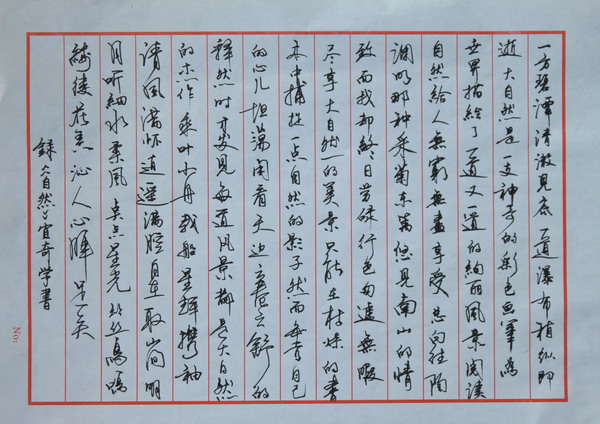 一方碧潭清澈见底一道瀑布稍纵即
逝大自然是一支神奇的彩色画笔为
世界描绘了一道又一道的绚丽风景阅读
自然给人无穷无尽享受总向往陶
渊明那种采菊东篱悠见南山的情
致而我却终日劳碌行色匆遽无暇
尽享大自然的美景只能在枯燥的书
本中捕捉一点自然的影子然而每当自己
的心儿坦荡闲看天边云卷云舒的
释然时才发见每道风景都是大自然
的杰作乘叶小舟载船星辉携袖
清风满怀逍遥满腔自在取山间明
月听细水柔风点点星光丝丝鸟鸣
缕缕花香沁人心脾 是一天
录《大自然》宜奇学书
No: